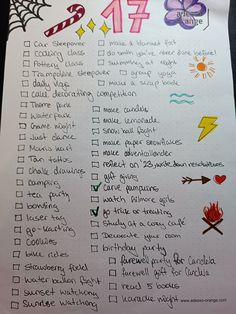 17
adless orange
Car Sleepover
make a blanket fort
cooking class
Do smth you've never done before!
Pottery class
Swimming at night
Trampoline sleepover
group yoga
daily vlogs
make a scrap book
cake decorating competition
Theme Park
Water park
make candles
Game night
make lemonade
Just dance
snow ball fight
Mario kart
make paper snowflakes
Tan tattoos
make adventcalendar
chalk drawings
reflect on '23, write down resolutions
camping
gift giving
tea party
carve pumpkins
bowling
watch Gilmore girls
laser tag
trick or treating
go-karting
Study at a cozy café
cookies
Decorate your room
bike rides
birthday party
strawberry field
farewell party for Candela
water balloon fight
farewell gift for Candela
sunset watching
read 5 books
Sunrise watching
karaoke night